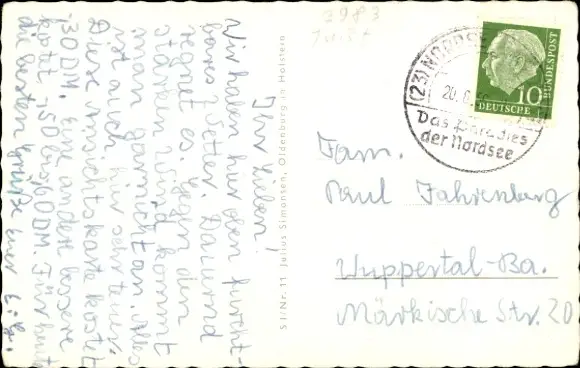 3983
Juist
(23) NORDSE
20.6.
Das Paradies
der Nordsee
DEUTSCHE
BUNDESPOST
10
Ihr Lieben!
Wir haben hier oben furcht-
bares Wetter. Dauernd
regnet es. Gegen den
starken Wind kommt
man garnicht an. Alles
ist auch hier sehr teuer.
Diese Ansichtskarte kostet
30 DM, eine andere bessere
kostet -,50 bis 60 DM. Für heute
die besten Grüße
S II/Nr. 11 Julius Simonsen, Oldenburg in Holstein
Fam.
Paul Fahrenberg
Wuppertal-Ba.
Märkische Str. 20